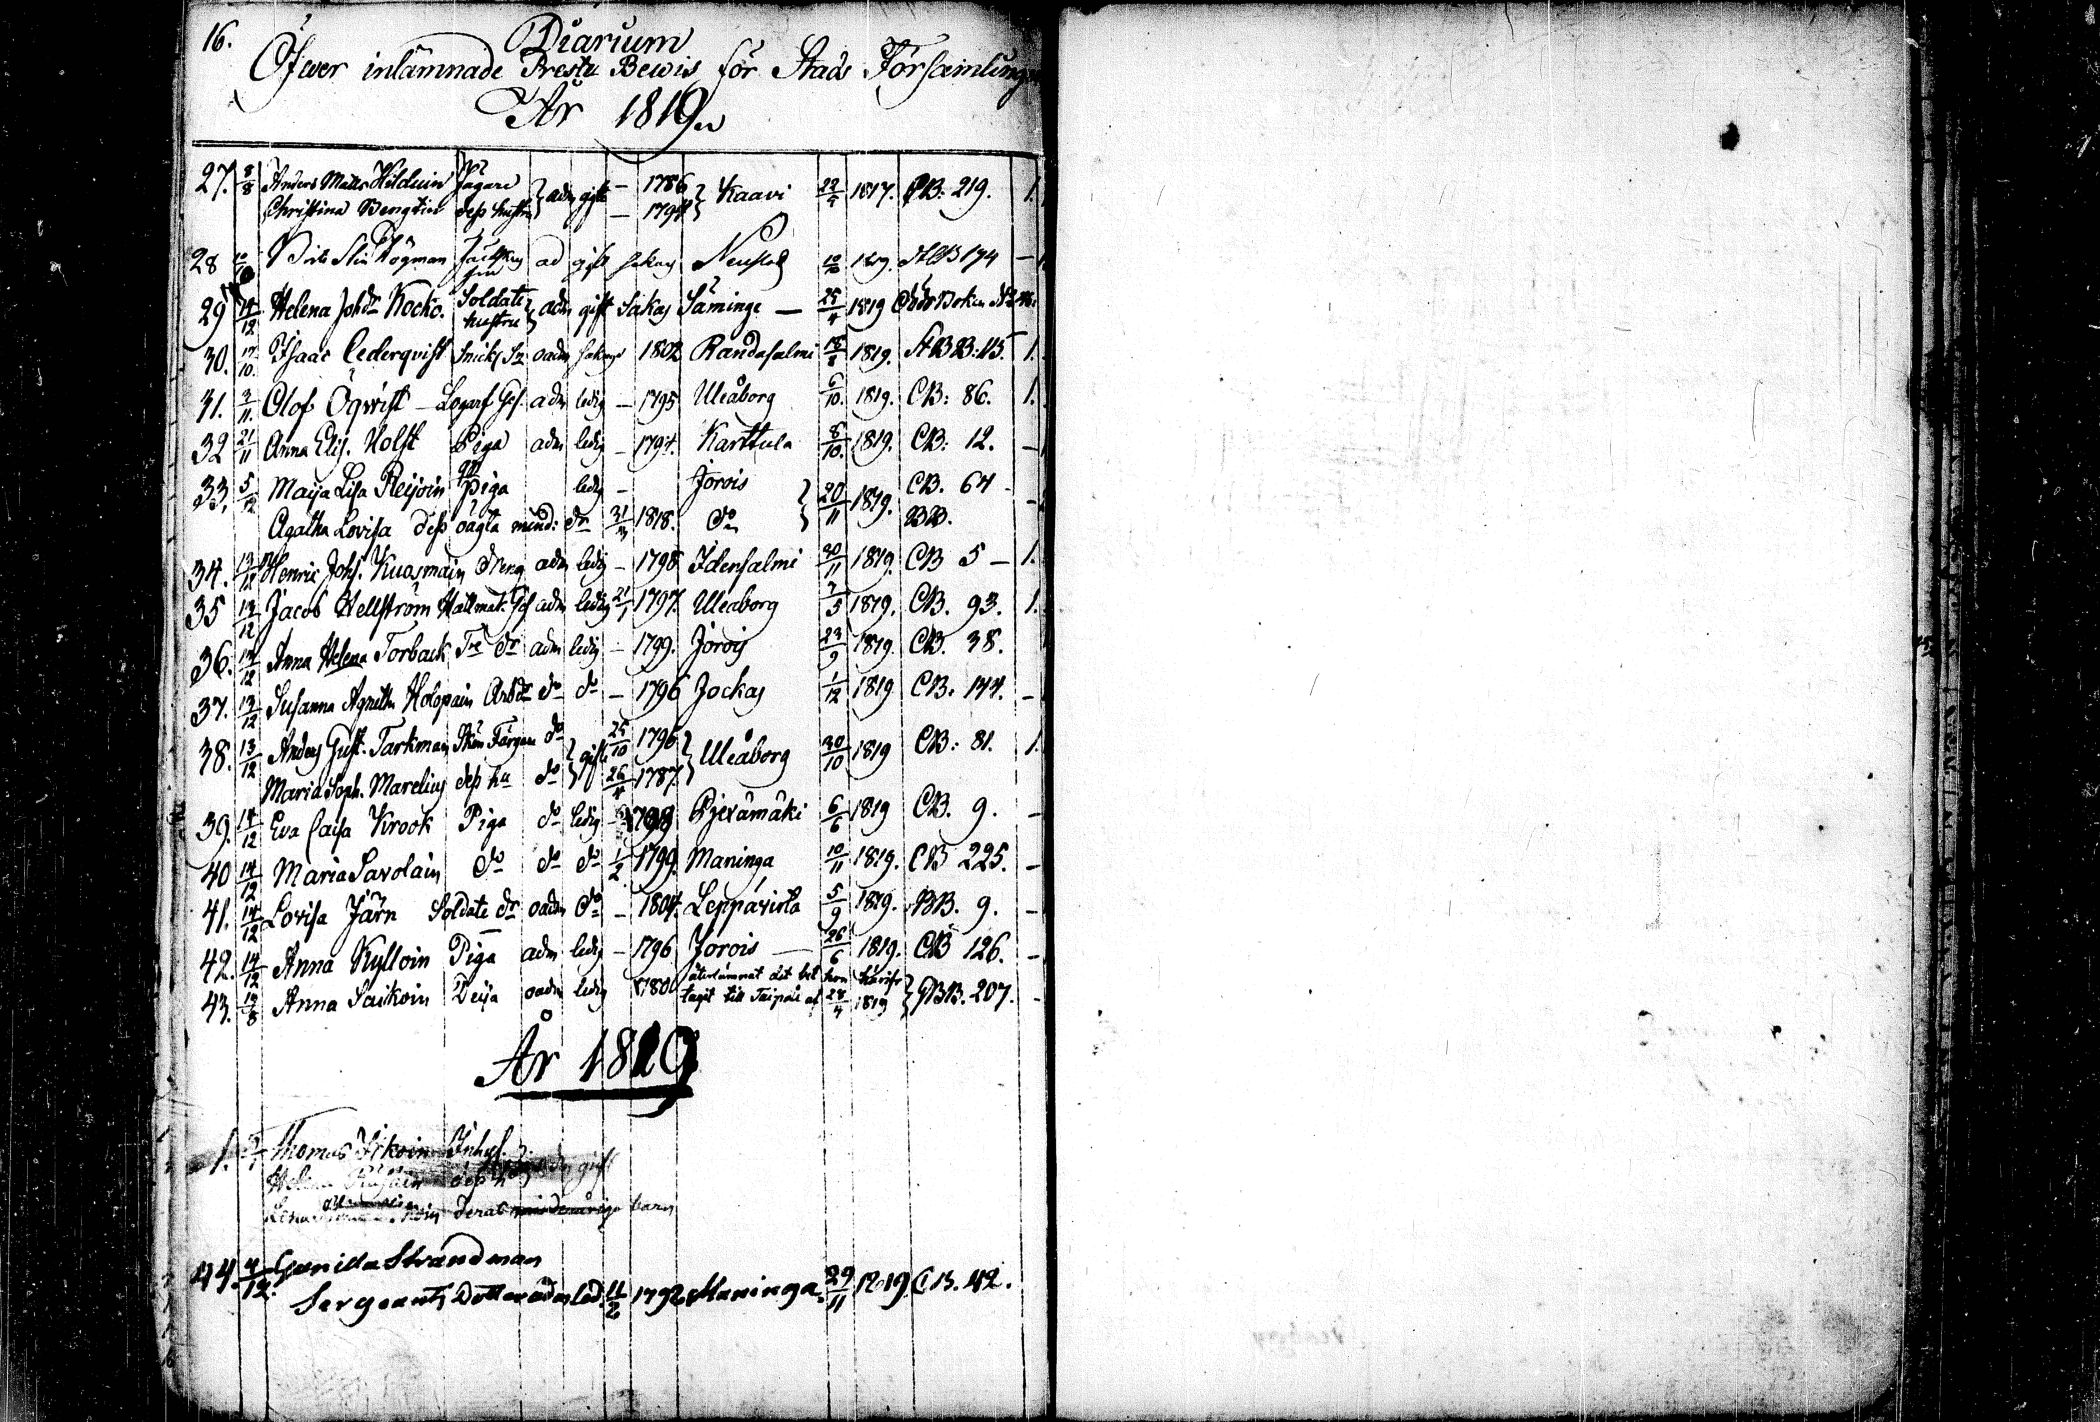 16.
Diarium
Öfwer inlämnade Preste Bewis för Stads Församlingen
År 1819.
27. 8/8 Anders Matts Hilduin Jagare adm gifte — 1786 Kaavi 22/7 1817. CB: 219. 1.
Christina Bengtin dess hustru — 1794
28 10/10 Brita Stin Högman ad gift sakas 10/10 1819. AlB 174 —
29 14/12 Helena Johdr Kocko. Soldats hustru adm gift Sakas Säminge — 25/4 1819
30. 17/10. Isaac Cederqvist Snick. adm sakas 1802 Randasalmi 18/8 1819. AB B: 115. 1.
31. 3/11. Olof Öqvist — Logarf Ges. adm ledig — 1795 Uleåborg 6/10. 1819. CB: 86. 1.
32 21/11 Anna Elis. Holst Piga adm ledig — 1794. Karttula 8/10. 1819. CB: 12. —
33. 5/12 Maija Lisa Reijoin piga ledig — Jorois 20/11 1819. CB. 64 —
Agatha Lovisa dess oägta mind: dr 31/3 1818. do BB.
34. 13/12 Henric Johs. Kuosmain dreng adm ledig — 1798 Idensalmi 30/11 1819. CB 5 — 1.
35 13/12 Jacob Hellström Hattmak. Ges adm ledig 21/1 1797. Uleaborg 7/5 1819. CB. 93. 1.
36. 14/12 Anna Helena Torback dr adm ledig — 1799. Jorois 23/9 1819. CB. 38.
37. 13/12 Susanna Agnetha Holopain do do — 1796 Jockas 1/12 1819 CB. 144. —
38. 13/12 Anders Gust. Tarkman Skön Färgare do gifte 25/10 1796 Uleåborg 30/10 1819 CB: 81. 1.
Maria Soph. Marelius dess hu do 26/4 1787.
39. 14/12 Eva Caisa Krook Piga do ledig — 1798 Pjexämäki 6/6 1819 CB. 9. —
40 14/12 Maria Savolain do do do 1/2 1799. Maninga 10/11 1819. CB 225. —
41. 14/12 Lovisa Järn Soldats dr oadm do — 1804. Leppävirta 5/9 1819. BB. 9. —
42. 14/12 Anna Kylloin Piga adm ledig — 1796 Jorois — 26/6 1819. CB 126. —
43. 13/8 Anna Saikoin Deija oadm ledig 1780 återlämnat det bet hon härifr
tagit till Taipale af 28/4 1819 BB. 207. —
År 1820
1. Thomas Itkoin Inhys.
Helena dess hu gift
Lena deras minderåriga barn
44. 4/12. Gunilla Strandman
Sergeants Dotter adm led. 11/2 1792 Maninga. 29/11 1819. CB. 42.